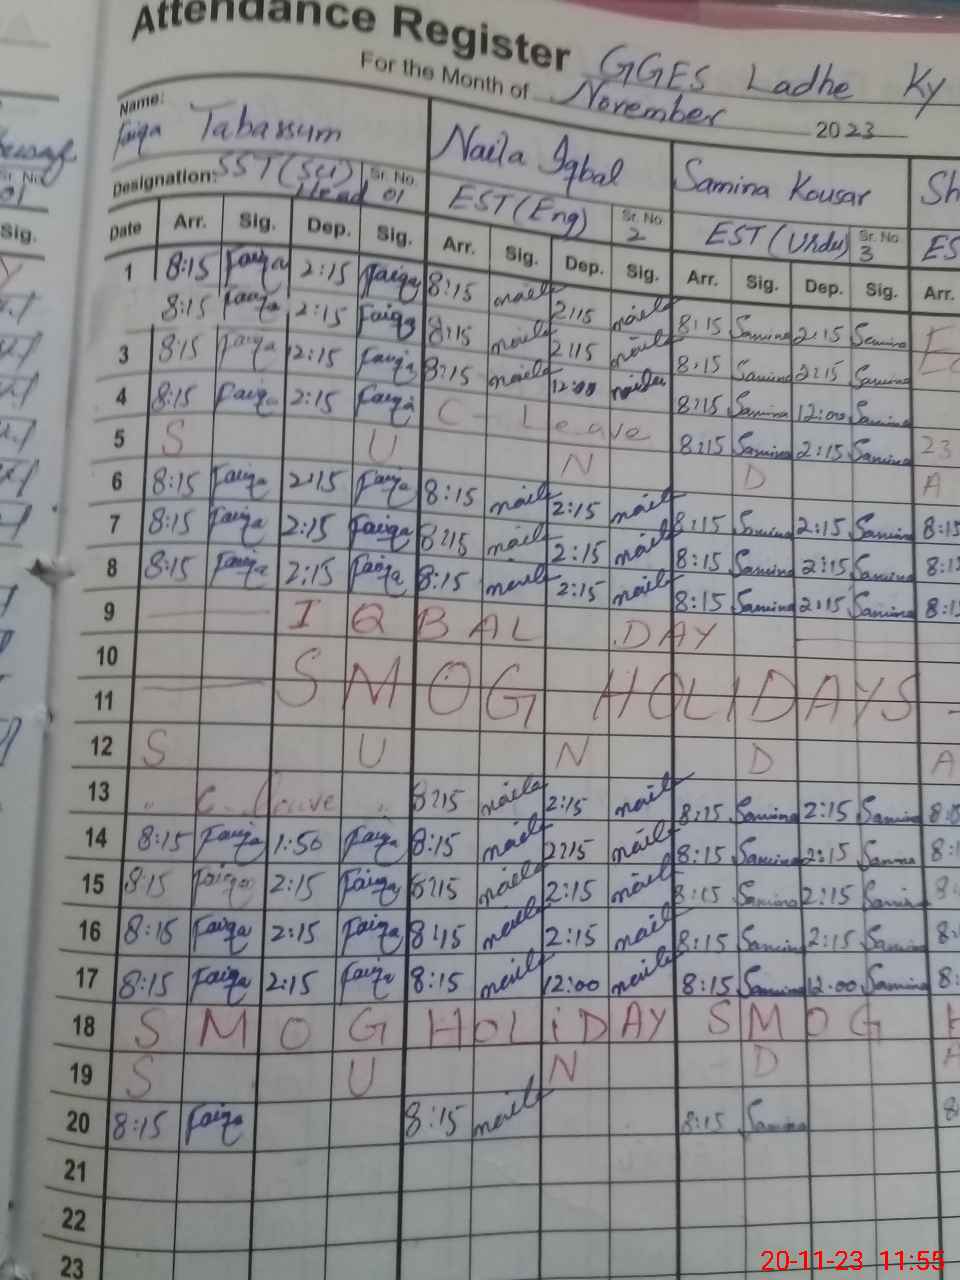 Attendance Register GGES Ladhe Ky
For the Month of November 2023
Name: Faiqa Tabassum Naila Iqbal Samina Kousar Sh
Designation: SST (Sci) Head Sr. No. 01 EST (Eng) Sr. No. 2 EST (Urdu) Sr. No 3 ES
Date Arr. Sig. Dep. Sig. Arr. Sig. Dep. Sig. Arr. Sig. Dep. Sig. Arr.
1 8:15 Faiqa 2:15 Faiqa 8:15 naila 2:15 naila 8:15 Samina 2:15 Samina
8:15 Faiqa 2:15 Faiqa 8:15 naila 2:15 naila 8:15 Samina 2:15 Samina
3 8:15 Faiqa 12:15 Faiqa 8:15 naila 12:00 naila 8:15 Samina 12:00 Samina
4 8:15 Faiqa 2:15 Faiqa C - Leave 8:15 Samina 2:15 Samina 23
5 S U N D A
6 8:15 Faiqa 2:15 Faiqa 8:15 naila 2:15 naila 8:15 Samina 2:15 Samina 8:15
7 8:15 Faiqa 2:15 Faiqa 8:15 naila 2:15 naila 8:15 Samina 2:15 Samina 8:15
8 8:15 Faiqa 2:15 Faiqa 8:15 naila 2:15 naila 8:15 Samina 2:15 Samina 8:15
9 IQBAL DAY
10 SMOG HOLIDAYS
11
12 S U N D A
13 " C. Leave " 8:15 naila 2:15 naila 8:15 Samina 2:15 Samina
14 8:15 Faiqa 1:50 Faiqa 8:15 naila 2:15 naila 8:15 Samina 2:15 Samina 8:1
15 8:15 Faiqa 2:15 Faiqa 8:15 naila 2:15 naila 8:15 Samina 2:15 Samina
16 8:15 Faiqa 2:15 Faiqa 8:15 naila 2:15 naila 8:15 Samina 2:15 Samina 8:
17 8:15 Faiqa 2:15 Faiqa 8:15 naila 12:00 naila 8:15 Samina 12:00 Samina 8:
18 SMOG HOLIDAY SMOG H
19 S U N D A
20 8:15 Faiqa 8:15 naila 8:15 Samina 8:
21
22
23
20-11-23 11:55